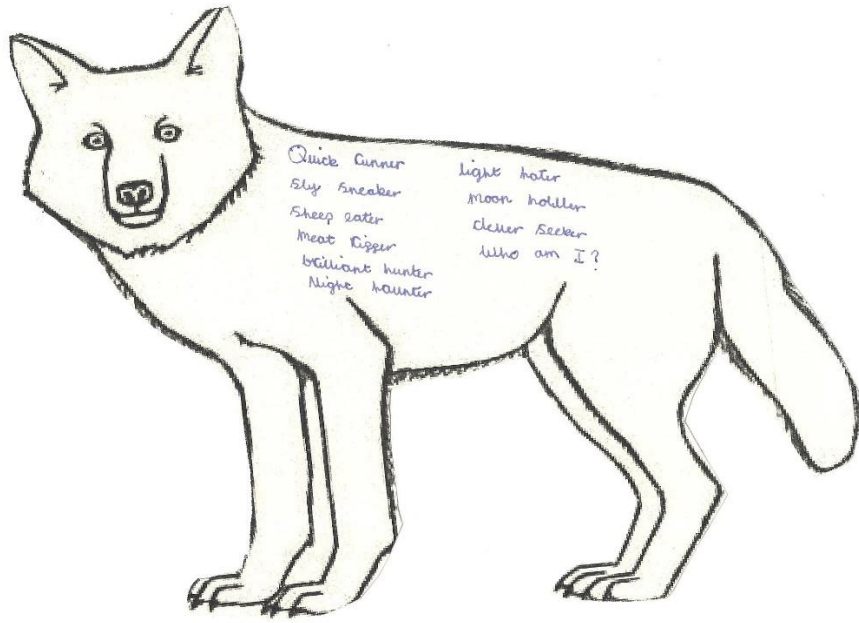 Quick runner
Sly sneaker
Sheep eater
Meat ripper
brilliant hunter
Night haunter
light hater
Moon holller
clever seeker
Who am I?